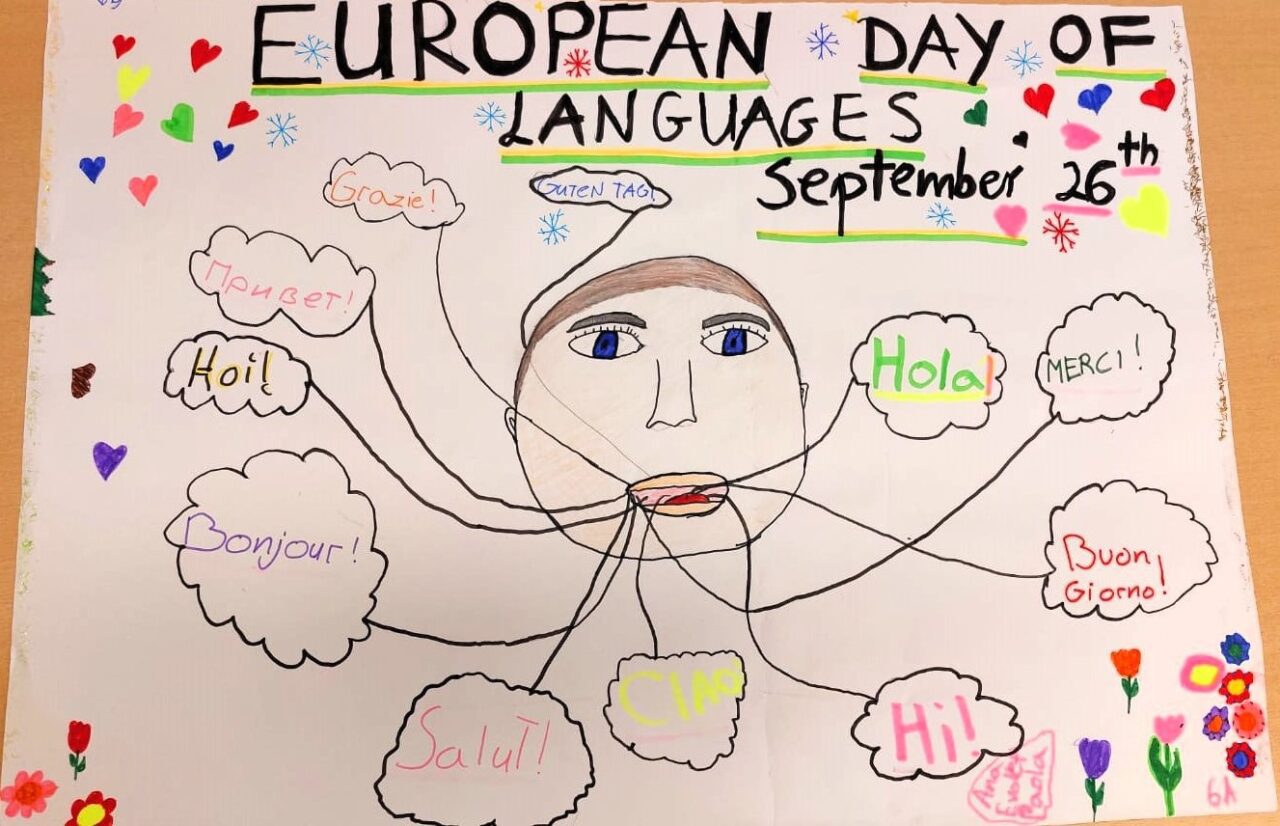 EUROPEAN DAY OF
LANGUAGES
September 26th
Grazie!
GUTEN TAG!
Привет!
Hoi!
Hola!
MERCI!
Bonjour!
Buon
Giorno!
Salut!
CIAO!
Hi!
Ana
Paola
6A